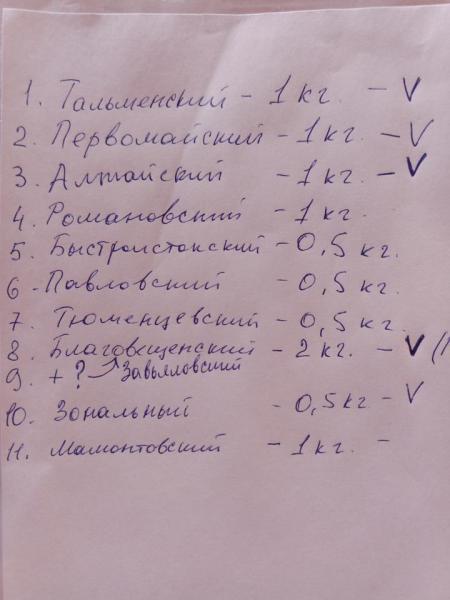 1. Тальменский - 1 кг. - V
2. Первомайский - 1 кг. - V
3. Алтайский - 1 кг. - V
4. Романовский - 1 кг.
5. Быстроистокский - 0,5 кг.
6 - Павловский - 0,5 кг.
7. Тюменцевский - 0,5 кг.
8. Благовещенский - 2 кг. - V (1
9. + ? Завьяловский
10. Зональный - 0,5 кг - V
11. Мамонтовский - 1 кг. -